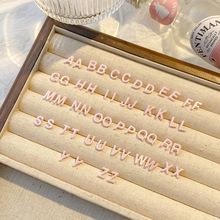 AA BB CC DD EE FF
GG HH II JJ KK LL
MM NN OO PP QQ RR
SS TT UU VV WW XX
YY ZZ